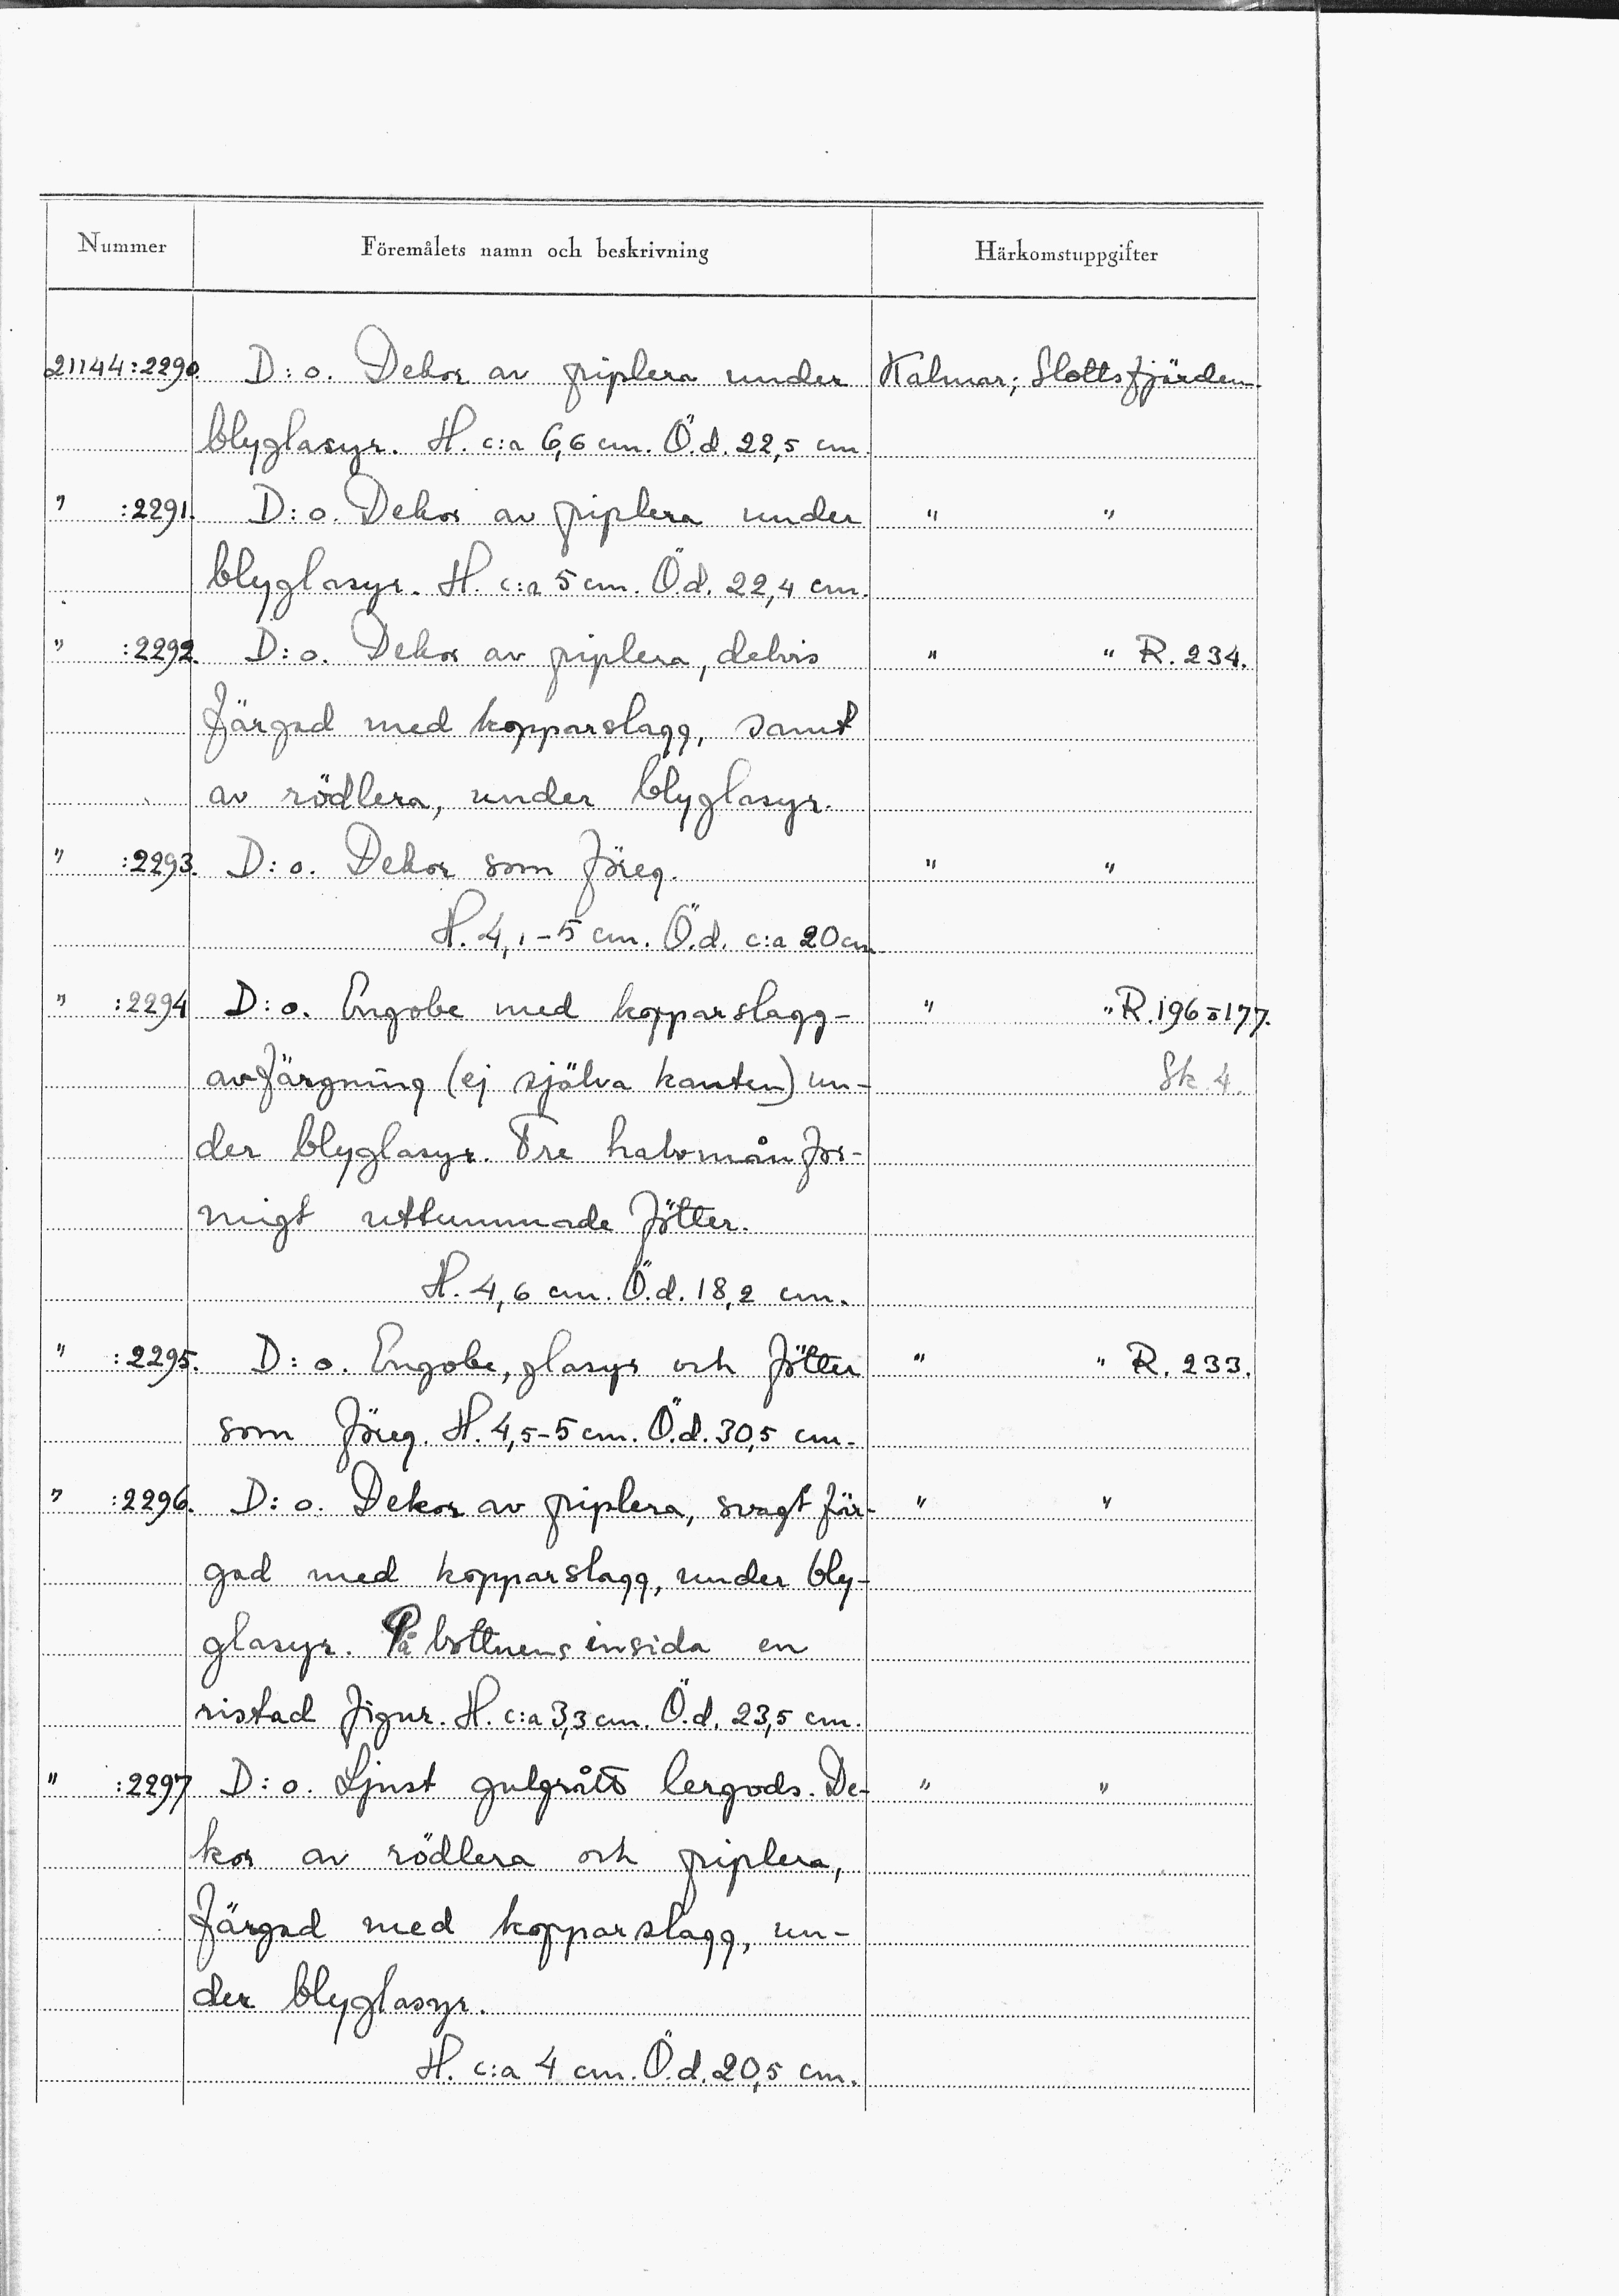 Nummer Föremålets namn och beskrivning Härkomstuppgifter
21144:2290. D:o. Dekor av piplera under Kalmar; Slottsfjärden.
blyglasyr. H. c:a 6,6 cm. Ö.d. 22,5 cm.
" :2291. D:o. Dekor av piplera under " "
blyglasyr. H. c:a 5 cm. Ö.d. 22,4 cm.
" :2292. D:o. Dekor av piplera, delvis " " R. 234.
färgad med kopparslagg, samt
av rödlera, under blyglasyr.
" :2293. D:o. Dekor som föreg. " "
H. 4,1-5 cm. Ö.d. c:a 20 cm
" :2294 D:o. Engobe med kopparslagg- " " R. 196=177.
avfärgning (ej själva kanten) un- Sk 4.
der blyglasyr. Tre halvmånfor-
migt uttummade fötter.
H. 4,6 cm. Ö.d. 18,2 cm.
" :2295. D:o. Engobe, glasyr och fötter " " R. 233.
som föreg. H. 4,5-5 cm. Ö.d. 30,5 cm.
" :2296. D:o. Dekor av piplera, svagt fär- " "
gad med kopparslagg, under bly-
glasyr. På bottnens insida en
ristad figur. H. c:a 3,3 cm. Ö.d. 23,5 cm.
" :2297 D:o. Ljust gulgrått lergods. De- " "
kor av rödlera och piplera,
färgad med kopparslagg, un-
der blyglasyr.
H. c:a 4 cm. Ö.d. 20,5 cm.